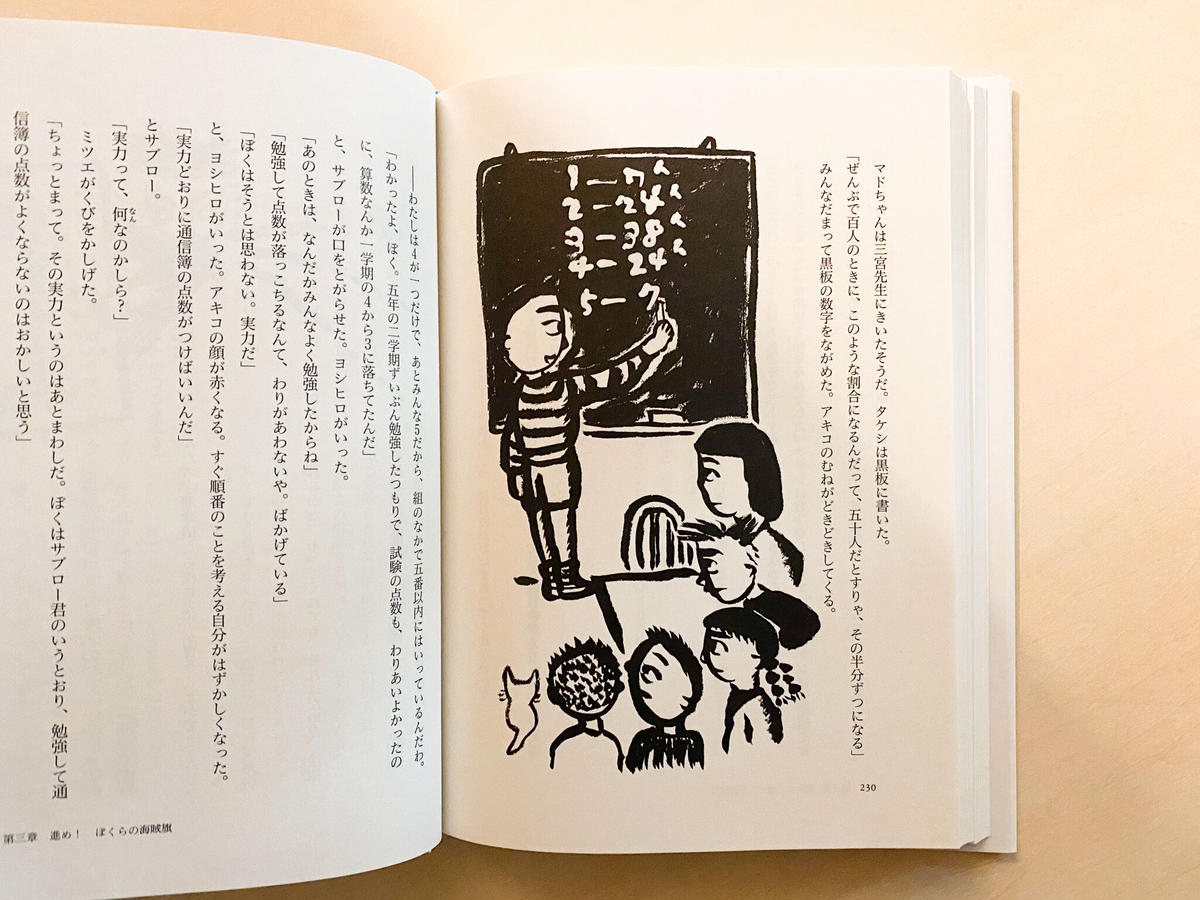 マドちゃんは三宮先生にきいたそうだ。タケシは黒板に書いた。
「ぜんぶで百人のときに、このような割合になるんだって、五十人だとすりゃ、その半分ずつになる」
みんなだまって黒板の数字をながめた。アキコのむねがどきどきしてくる。
1—7人
2—24人
3—38人
4—24
5—7
230
——わたしは4が一つだけで、あとみんな5だから、組のなかで五番以内にはいっているんだわ。
「わかったよ、ぼく。五年の二学期ずいぶん勉強したつもりで、試験の点数も、わりあいよかったの
に、算数なんか一学期の4から3に落ちてたんだ」
と、サブローが口をとがらせた。ヨシヒロがいった。
「あのときは、なんだかみんなよく勉強したからね」
「勉強して点数が落っこちるなんて、わりがあわないや。ばかげている」
「ぼくはそうとは思わない。実力だ」
と、ヨシヒロがいった。アキコの顔が赤くなる。すぐ順番のことを考える自分がはずかしくなった。
「実力どおりに通信簿の点数がつけばいいんだ」
とサブロー。
「実力って、何なのかしら?」
なん
ミツエがくびをかしげた。
「ちょっとまって。その実力というのはあとまわしだ。ぼくはサブロー君のいうとおり、勉強して通
信簿の点数がよくならないのはおかしいと思う」
第三章 進め! ぼくらの海賊旗